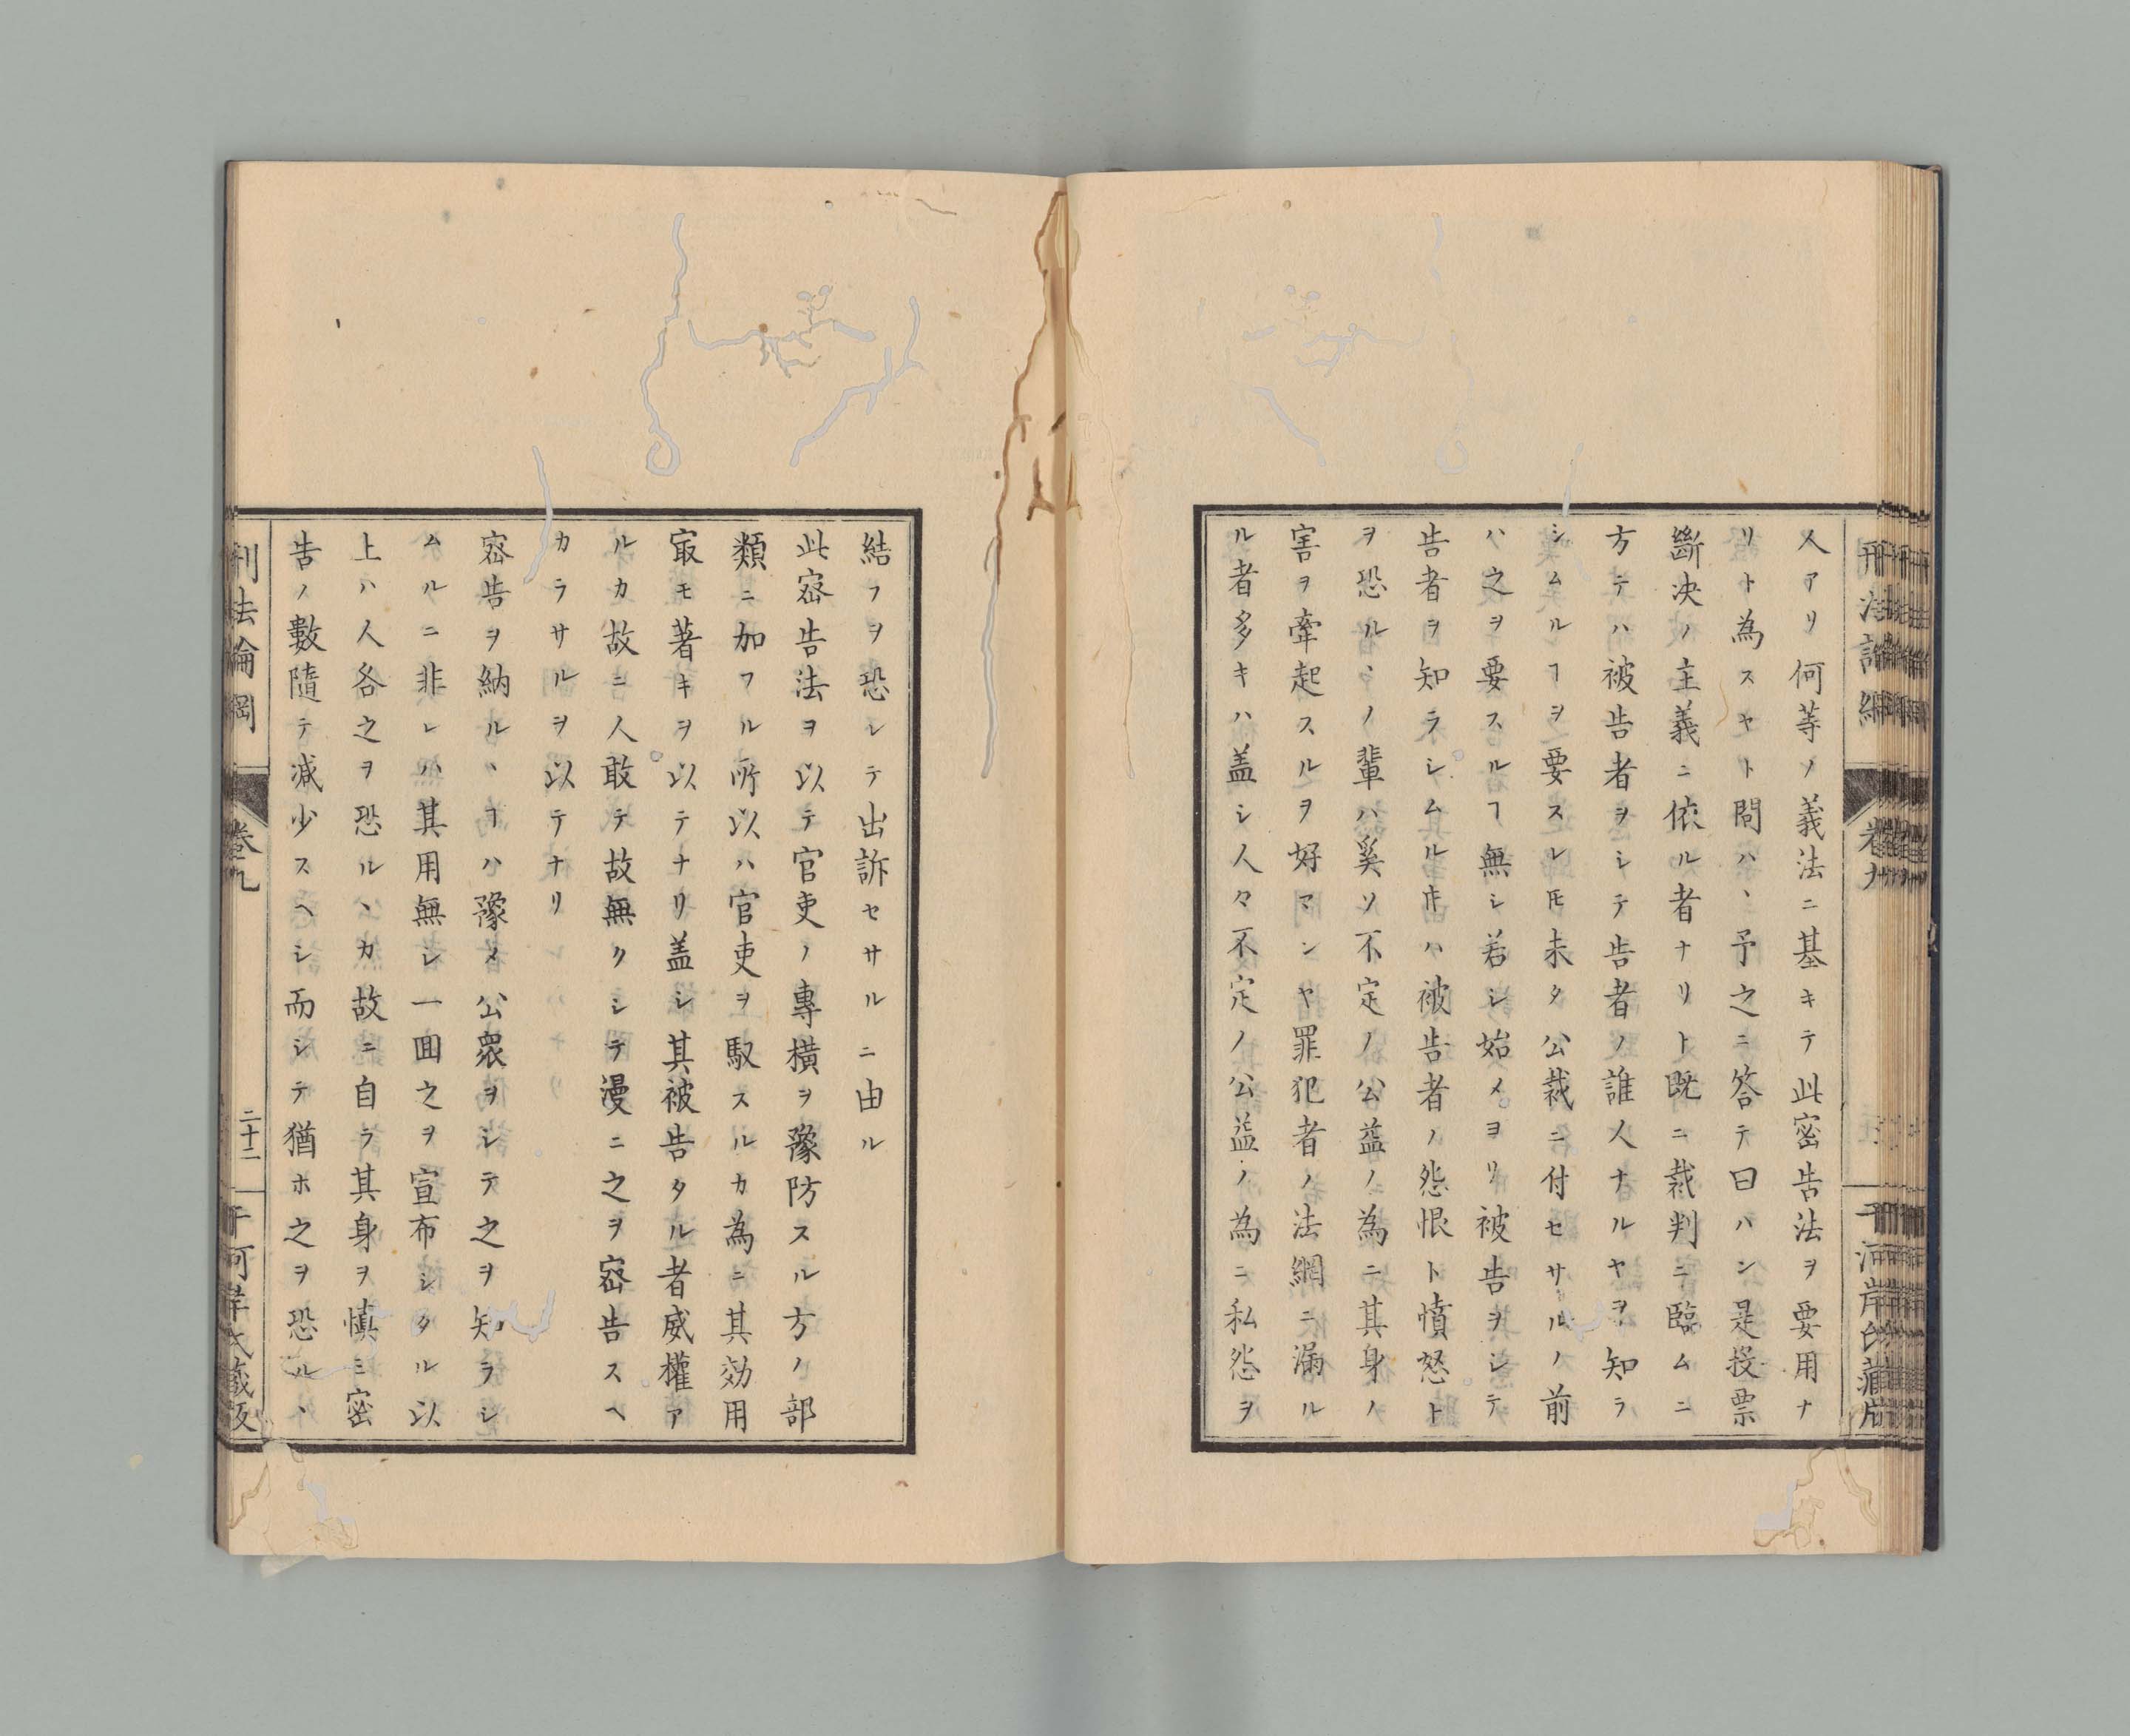 人アリ何等ノ義法ニ基キテ此密告法ヲ要用ナ
リト為スヤト問ハヽ予之ニ答テ曰ハン是投票
斷决ノ主義ニ依ル者ナリト既ニ裁判ニ臨ムニ
方テハ被告者ヲシテ告者ノ誰人ナルヤヲ知ラ
シムルヿヲ要スレ𪜈未タ公裁ニ付セサルノ前
ハ之ヲ要スルヿ無シ若シ始メヨリ被告ヲシテ
告者ヲ知ラシムル𪜈ハ被告者ノ怨恨ト憤怒ト
ヲ恐ルヽノ輩ハ奚ソ不定ノ公益ノ為ニ其身ノ
害ヲ牽起スルヲ好マンヤ罪犯者ノ法網ニ漏ル
ル者多キハ盖シ人々不定ノ公益ノ為ニ私怨ヲ
結フヲ恐レテ出訴セサルニ由ル
此宻告法ヲ以テ官吏ノ專横ヲ豫防スル方ノ部
類ニ加フル所以ハ官吏ヲ馭スルカ為ニ其効用
㝡モ著キヲ以テナリ盖シ其被告タル者威權ア
ルカ故ニ人敢テ故無クシテ漫ニ之ヲ宻告スヘ
カラサルヲ以テナリ
宻告ヲ納ルヽヿハ豫メ公衆ヲシテ之ヲ知ラシ
ムルニ非レハ其用無シ一囬之ヲ宣布シタル以
上ハ人各之ヲ恐ルヽカ故ニ自ラ其身ヲ慎ミ密
告ノ數隨テ减少スヘシ而シテ猶ホ之ヲ恐ルヽ
刑法論綱
卷九
二十二
于河岸氏藏版